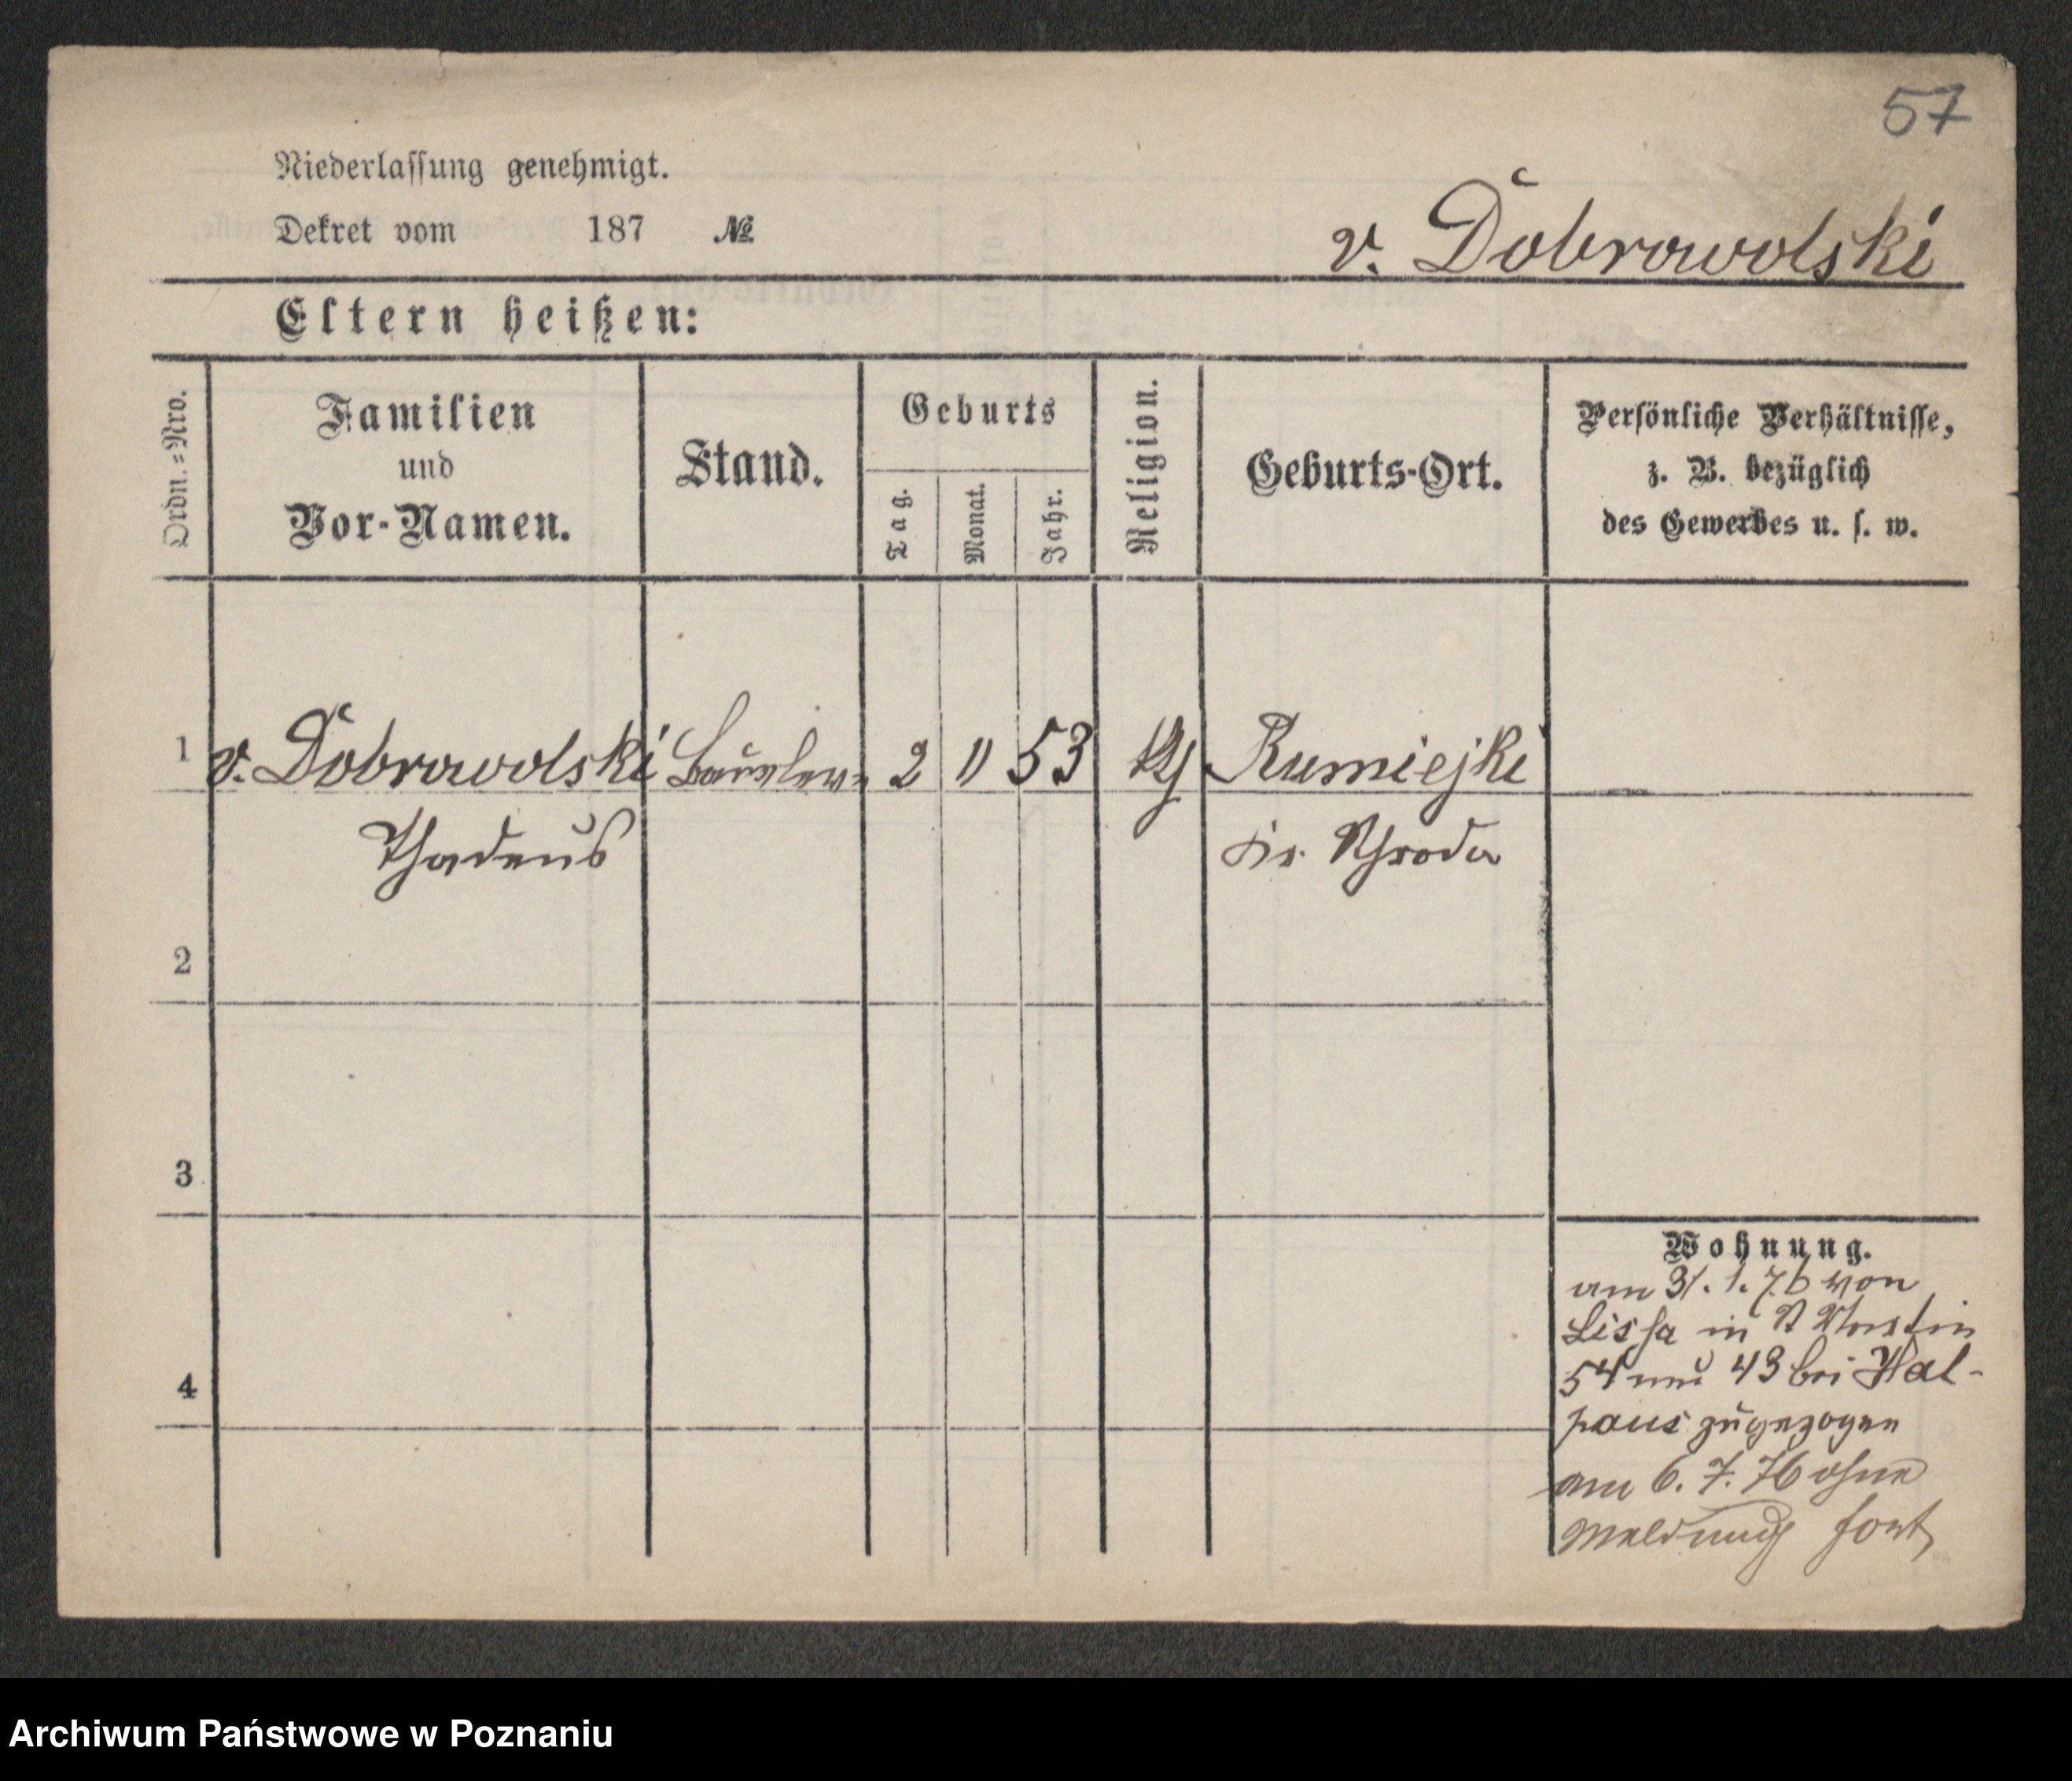 57
Niederlassung genehmigt.
Dekret vom 187 №
v. Dobrowolski
Eltern heißen:
Ordn.=Nro.
Familien
und
Vor-Namen.
Stand.
Geburts
Tag.
Monat.
Jahr.
Religion.
Geburts-Ort.
Persönliche Verhältnisse,
z. B. bezüglich
des Gewerbes u. s. w.
1 v. Dobrowolski 2 11 53 Rumiejki
Thadeus Kr. Schroda
2
3
4
Wohnung.
am 31. 1. 76 von
Lissa in St Martin
54 und 43 bei Hal-
paus zugezogen
am 6. 7. 76 ohne
Meldung fort
Archiwum Państwowe w Poznaniu